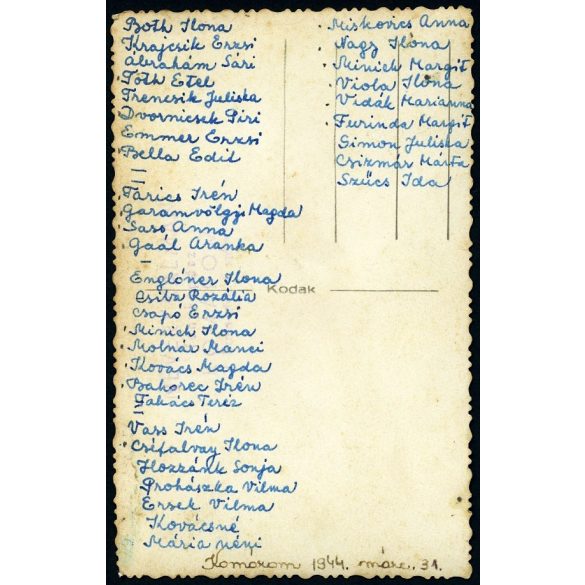 Both Ilona
Krajcsik Erzsi
Ábrahám Sári
Tóth Etel
Trencsik Juliska
Dvornicsek Piri
Emmer Erzsi
Bella Edit
II
Tárics Irén
Garamvölgyi Magda
Sass Anna
Gaál Aranka
I
Englóner Ilona
Csitz Rozália
Csapó Erzsi
Minich Ilona
Molnár Manci
Kovács Magda
Bahorec Irén
Takács Teréz
I
Vass Irén
Csifalvay Ilona
Hozzánk Sonja
Prohászka Vilma
Ersek Vilma
Kovácsné
Mária néni
Miskovics Anna
Nagy Ilona
Minich Margit
Viola Ilona
Vidák Marianna
Furinda Margit
Simon Juliska
Csizmár Márta
Szűcs Ida
Kodak
Komárom 1944. márc. 31.